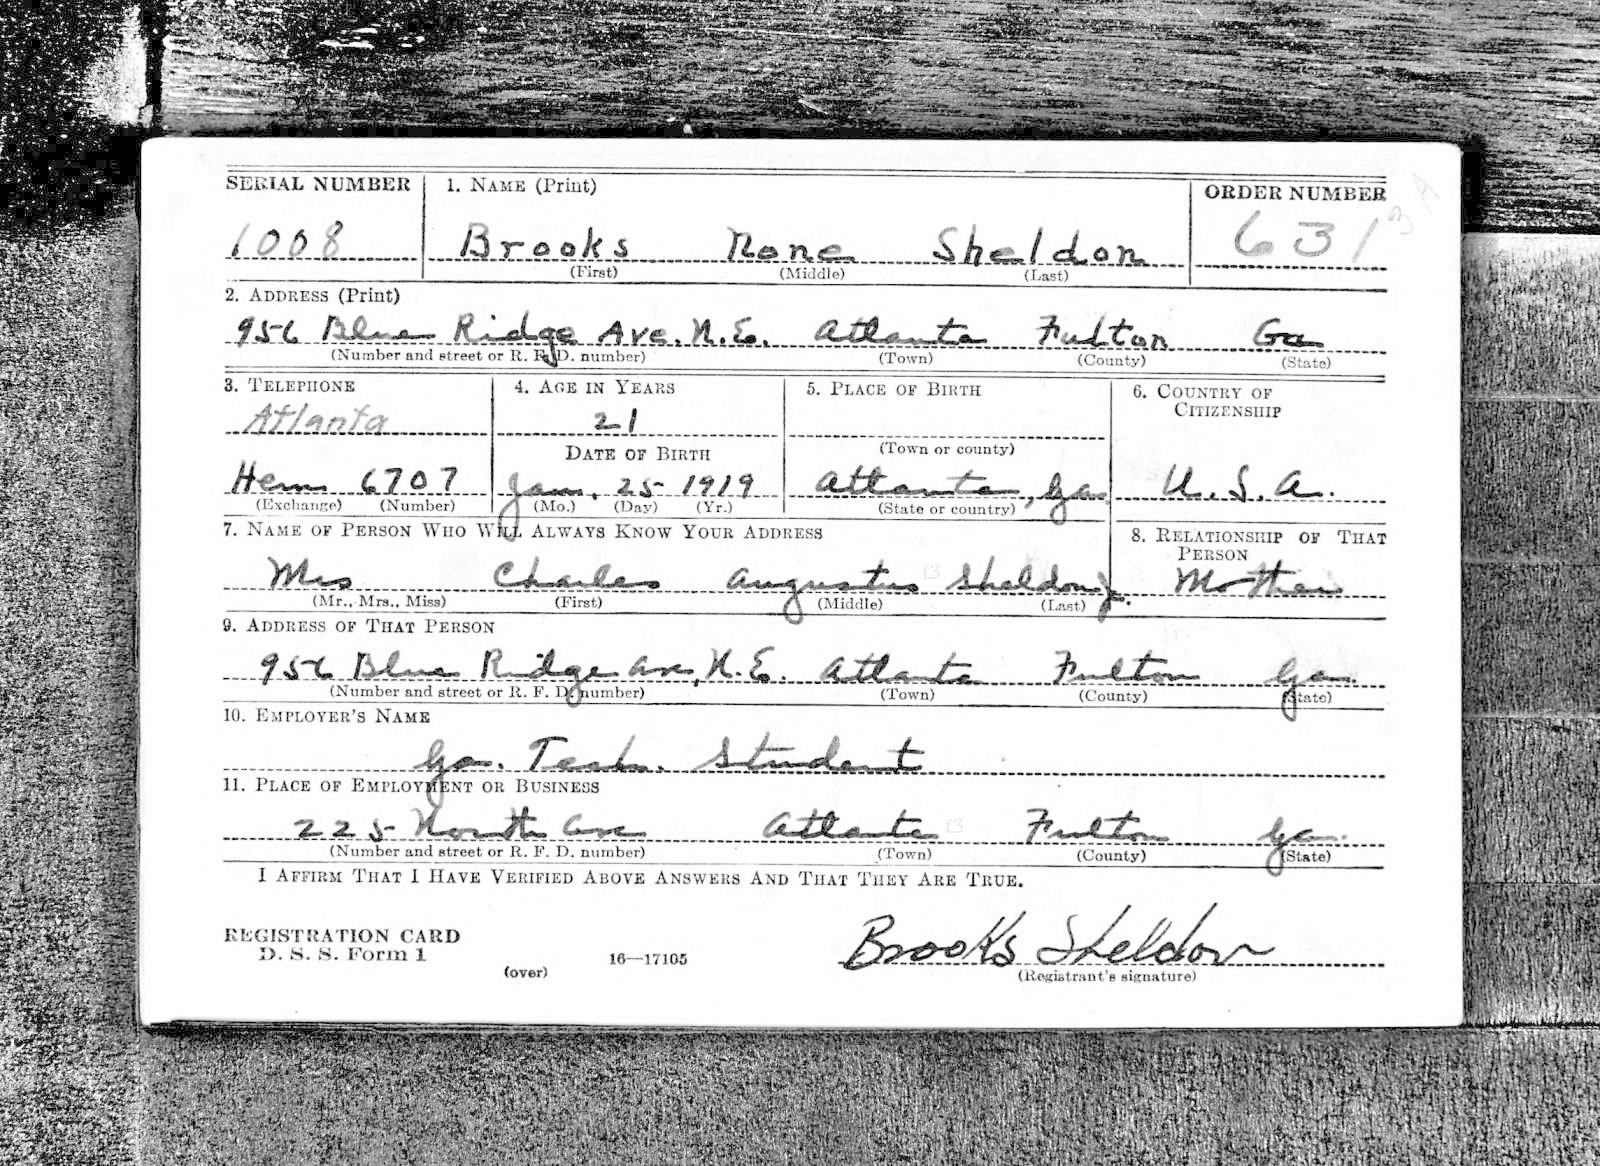 SERIAL NUMBER 1. NAME (Print) ORDER NUMBER
1008 Brooks None Sheldon 631 3A
(First) (Middle) (Last)
2. ADDRESS (Print)
956 Blue Ridge Ave. N.E. Atlanta Fulton Ga
(Number and street or R. F. D. number) (Town) (County) (State)
3. TELEPHONE 4. AGE IN YEARS 5. PLACE OF BIRTH 6. COUNTRY OF
CITIZENSHIP
Atlanta 21
DATE OF BIRTH (Town or county)
Hem 6707 Jan. 25 1919 Atlanta, Ga. U. S. A.
(Exchange) (Number) (Mo.) (Day) (Yr.) (State or country)
7. NAME OF PERSON WHO WILL ALWAYS KNOW YOUR ADDRESS 8. RELATIONSHIP OF THAT
PERSON
Mrs Charles Augustus Sheldon Jr. Mother
(Mr., Mrs., Miss) (First) (Middle) (Last)
9. ADDRESS OF THAT PERSON
956 Blue Ridge Ave, N.E. Atlanta Fulton Ga.
(Number and street or R. F. D. number) (Town) (County) (State)
10. EMPLOYER'S NAME
Ga. Tech. Student
11. PLACE OF EMPLOYMENT OR BUSINESS
225 North Ave Atlanta Fulton Ga.
(Number and street or R. F. D. number) (Town) (County) (State)
I AFFIRM THAT I HAVE VERIFIED ABOVE ANSWERS AND THAT THEY ARE TRUE.
REGISTRATION CARD
D. S. S. Form 1 (over) 16—17105 Brooks Sheldon
(Registrant's signature)